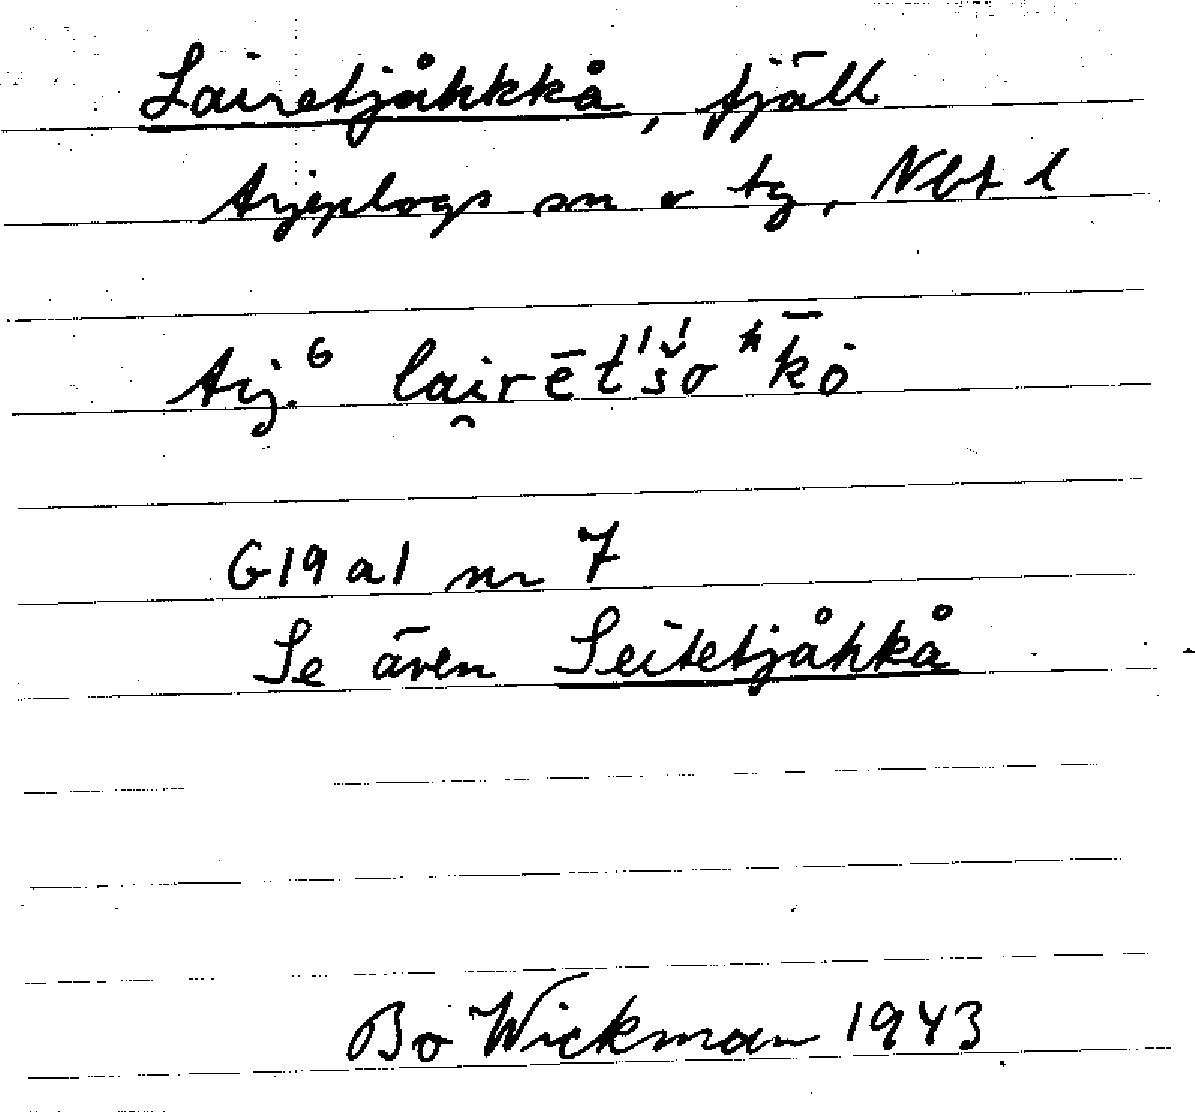 Lairetjåhkkå, fjäll
Arjeplogs sn o tg, Nbt l
Arj.⁶ lai̯rētˈšˈoʰk̄ȯ
G19a1 nr 7
Se även Seitetjåhkå
Bo Wickman 1943